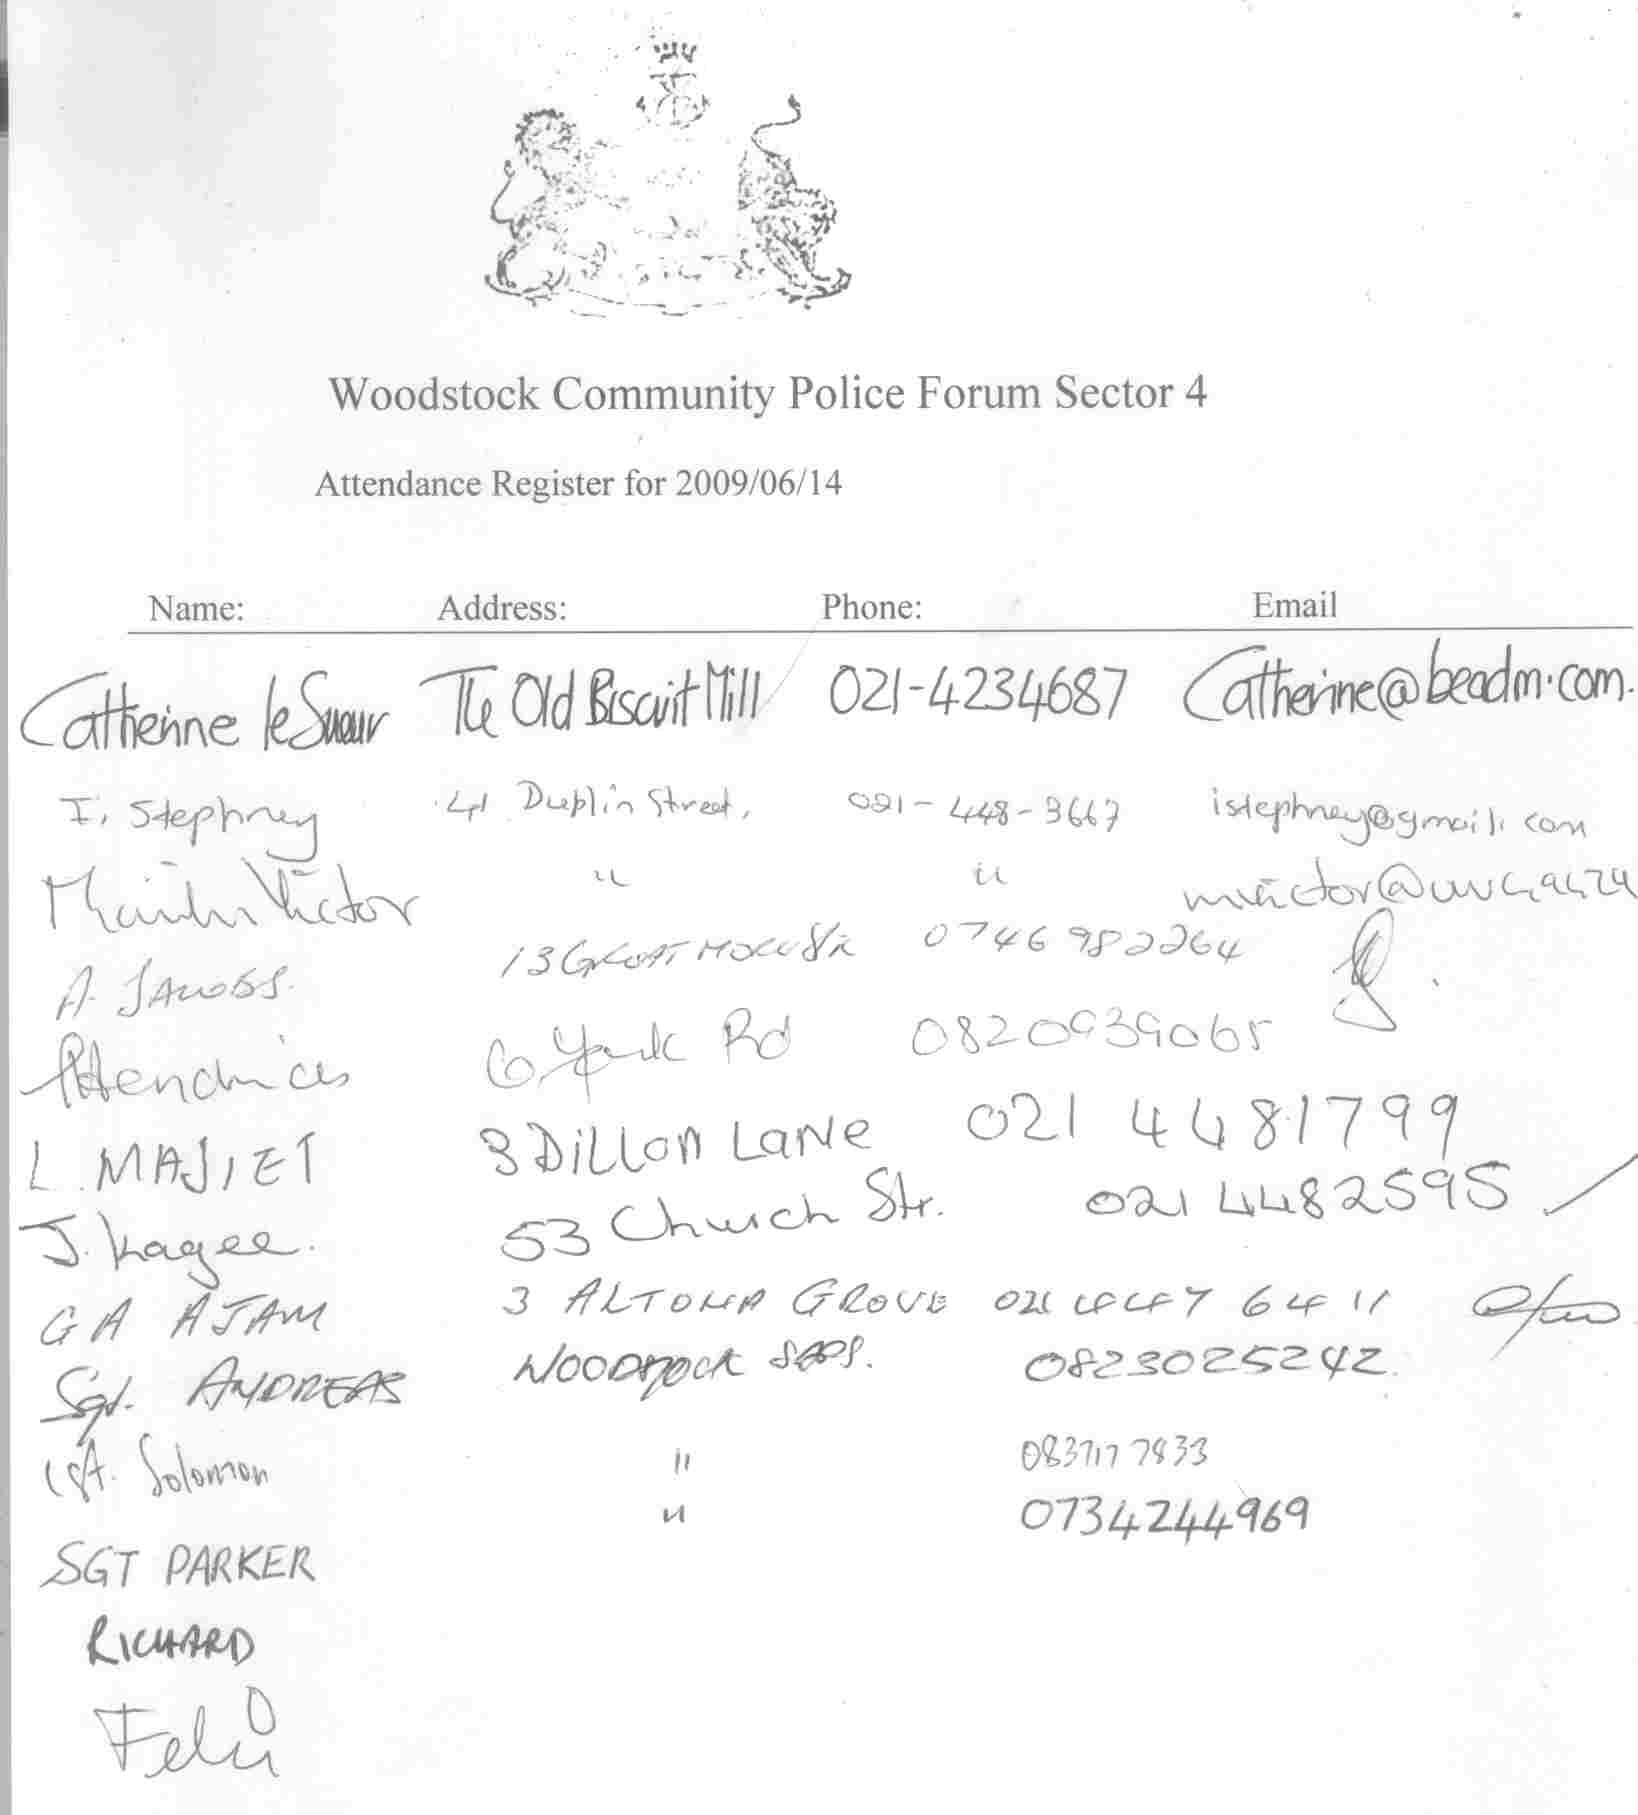 Woodstock Community Police Forum Sector 4
Attendance Register for 2009/06/14
Name: Address: Phone: Email
Catherine le Sueur The Old Biscuit Mill 021-4234687 Catherine@beadm.com.
I. Stephney 41 Dublin Street, 021-448-3667 istephney@gmail.com
Victor " "
A. JACOBS. 13 0746982264
6 York Rd 0820939065
L. MAJIET 3 DILLON LANE 021 4481799
J. Kagee. 53 Church Str. 021 4482595
GA AJAM 3 ALTONA GROVE 021 447 6411
Sgt. ANDREAS WOODSTOCK SAPS. 0823025242
Cst. Solomon " 0837177833
SGT PARKER " 0734244969
RICHARD